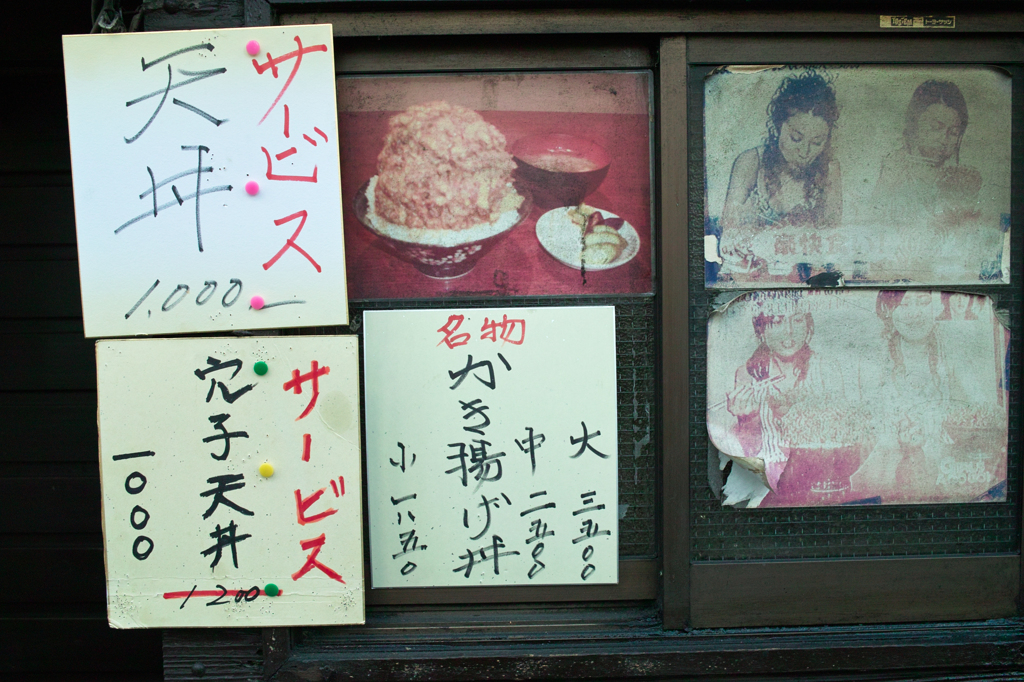 サービス
天丼
1,000
サービス
穴子天丼
一〇〇〇
1200
名物
かき揚げ丼
大 三五〇〇
中 二五〇〇
小 一八五〇